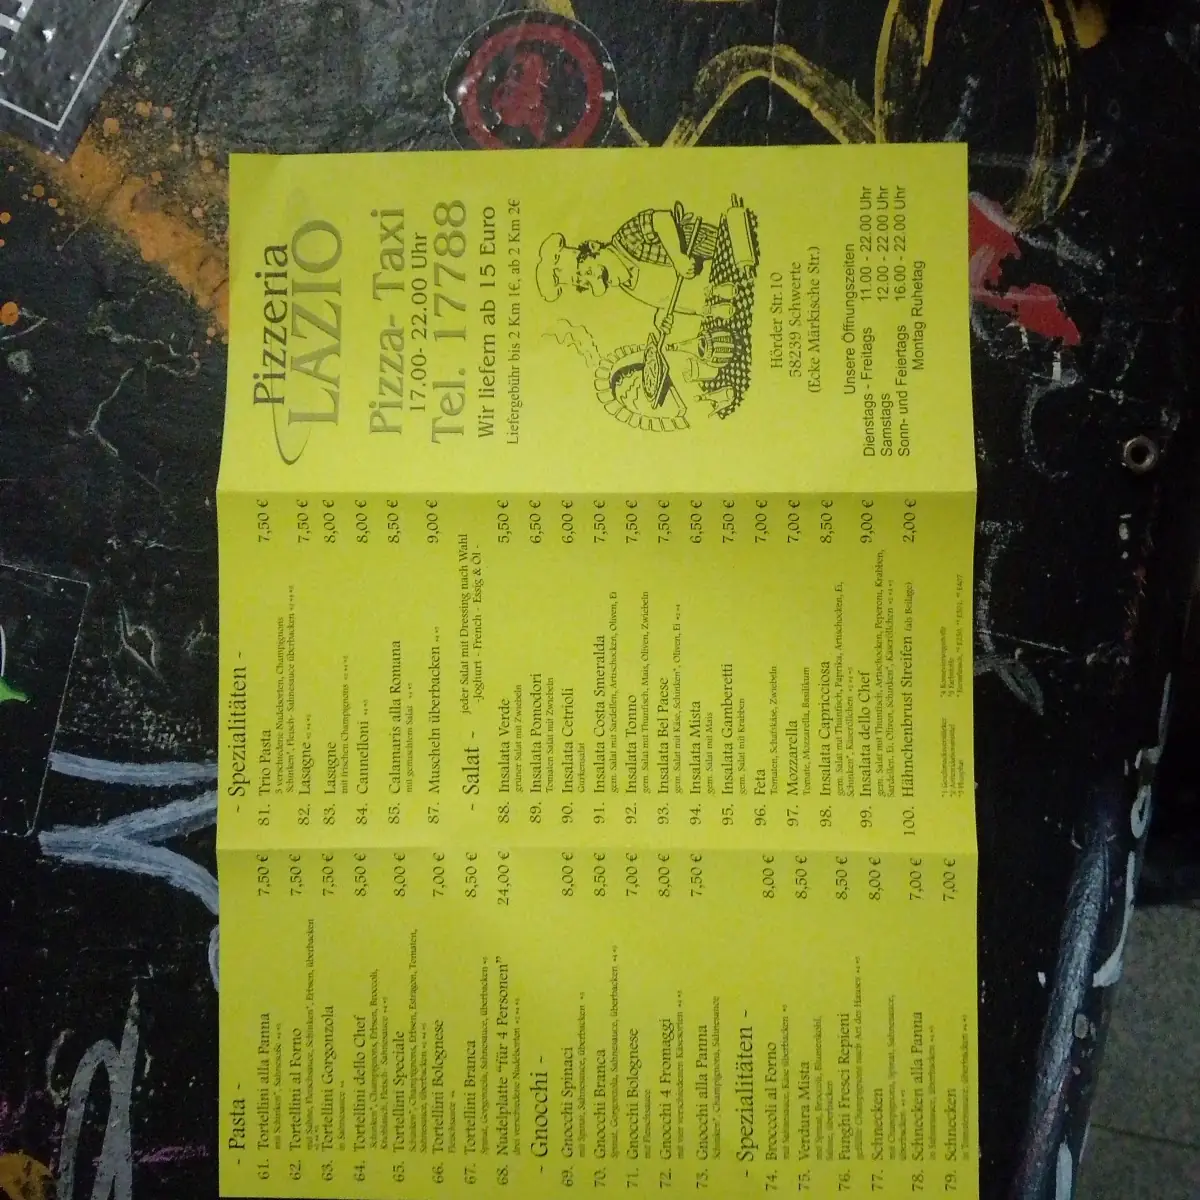 - Pasta -
61. Tortellini alla Panna 7,50 €
62. Tortellini al Forno 7,50 €
63. Tortellini Gorgonzola 7,50 €
in Sahnesauce
64. Tortellini dello Chef 8,50 €
65. Tortellini Speciale 8,00 €
66. Tortellini Bolognese 7,00 €
Fleischsauce
67. Tortellini Branca 8,50 €
Spinat, Gorgonzola, Sahnesauce, überbacken
68. Nudelplatte "für 4 Personen" 24,00 €
- Gnocchi -
69. Gnocchi Spinaci 8,00 €
mit Spinat, Sahnesauce, überbacken
70. Gnocchi Branca 8,50 €
Spinat, Gorgonzola, Sahnesauce, überbacken
71. Gnocchi Bolognese 7,00 €
mit Fleischsauce
72. Gnocchi 4 Formaggi 8,00 €
mit vier verschiedenen Käsesorten
73. Gnocchi alla Panna 7,50 €
Schinken, Champignons, Sahnesauce
- Spezialitäten -
74. Broccoli al Forno 8,00 €
mit Sahnesauce, Käse überbacken
75. Verdura Mista 8,50 €
mit Spinat, Broccoli, Blumenkohl,
Sahne, überbacken
76. Funghi Fresci Repieni 8,50 €
gefüllte Champignons nach Art des Hauses
77. Schnecken 8,00 €
78. Schnecken alla Panna 7,00 €
in Sahnesauce, überbacken
79. Schnecken 7,00 €
in Tomatensauce, überbacken
- Spezialitäten -
81. Trio Pasta 7,50 €
3 verschiedene Nudelsorten, Champignons
Schinken, Fleisch- Sahnesauce überbacken
82. Lasagne 7,50 €
83. Lasagne 8,00 €
mit frischen Champignons
84. Cannelloni 8,00 €
85. Calamaris alla Romana 8,50 €
mit gemischtem Salat
87. Muscheln überbacken 9,00 €
- Salat - jeder Salat mit Dressing nach Wahl
-Joghurt - French - Essig & Öl -
88. Insalata Verde 5,50 €
grüner Salat mit Zwiebeln
89. Insalata Pomodori 6,50 €
Tomaten Salat mit Zwiebeln
90. Insalata Cetrioli 6,00 €
Gurkensalat
91. Insalata Costa Smeralda 7,50 €
gem. Salat mit Sardellen, Artischocken, Oliven, Ei
92. Insalata Tonno 7,50 €
gem. Salat mit Thunfisch, Mais, Oliven, Zwiebeln
93. Insalata Bel Paese 7,50 €
gem. Salat mit Käse, Schinken, Oliven, Ei
94. Insalata Mista 6,50 €
gem. Salat mit Mais
95. Insalata Gamberetti 7,50 €
gem. Salat mit Krabben
96. Feta 7,00 €
Tomaten, Schafskäse, Zwiebeln
97. Mozzarella 7,00 €
Tomate, Mozzarella, Basilikum
98. Insalata Capricciosa 8,50 €
gem. Salat mit Thunfisch, Paprika, Artischocken, Ei,
Schinken, Käseröllchen
99. Insalata dello Chef 9,00 €
gem. Salat mit Thunfisch, Artischocken, Peperoni, Krabben,
Sardellen, Ei, Oliven, Schinken, Käseröllchen
100. Hähnchenbrust Streifen (als Beilage) 2,00 €
Pizzeria
LAZIO
Pizza- Taxi
17.00- 22.00 Uhr
Tel. 17788
Wir liefern ab 15 Euro
Liefergebühr bis 2 Km 1€, ab 2 Km 2€
Hörder Str.10
58239 Schwerte
(Ecke Märkische Str.)
Unsere Öffnungszeiten
Dienstags - Freitags 11.00 - 22.00 Uhr
Samstags 12.00 - 22.00 Uhr
Sonn- und Feiertags 16.00 - 22.00 Uhr
Montag Ruhetag